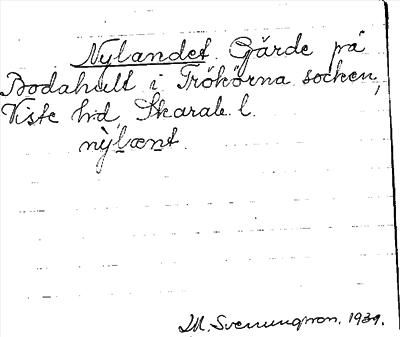 Nylandet. Gärde på
Bodahult i Trökörna socken,
Viste hd, Skarab. l.
nỳlænt.
M. Svenungsson. 1931.